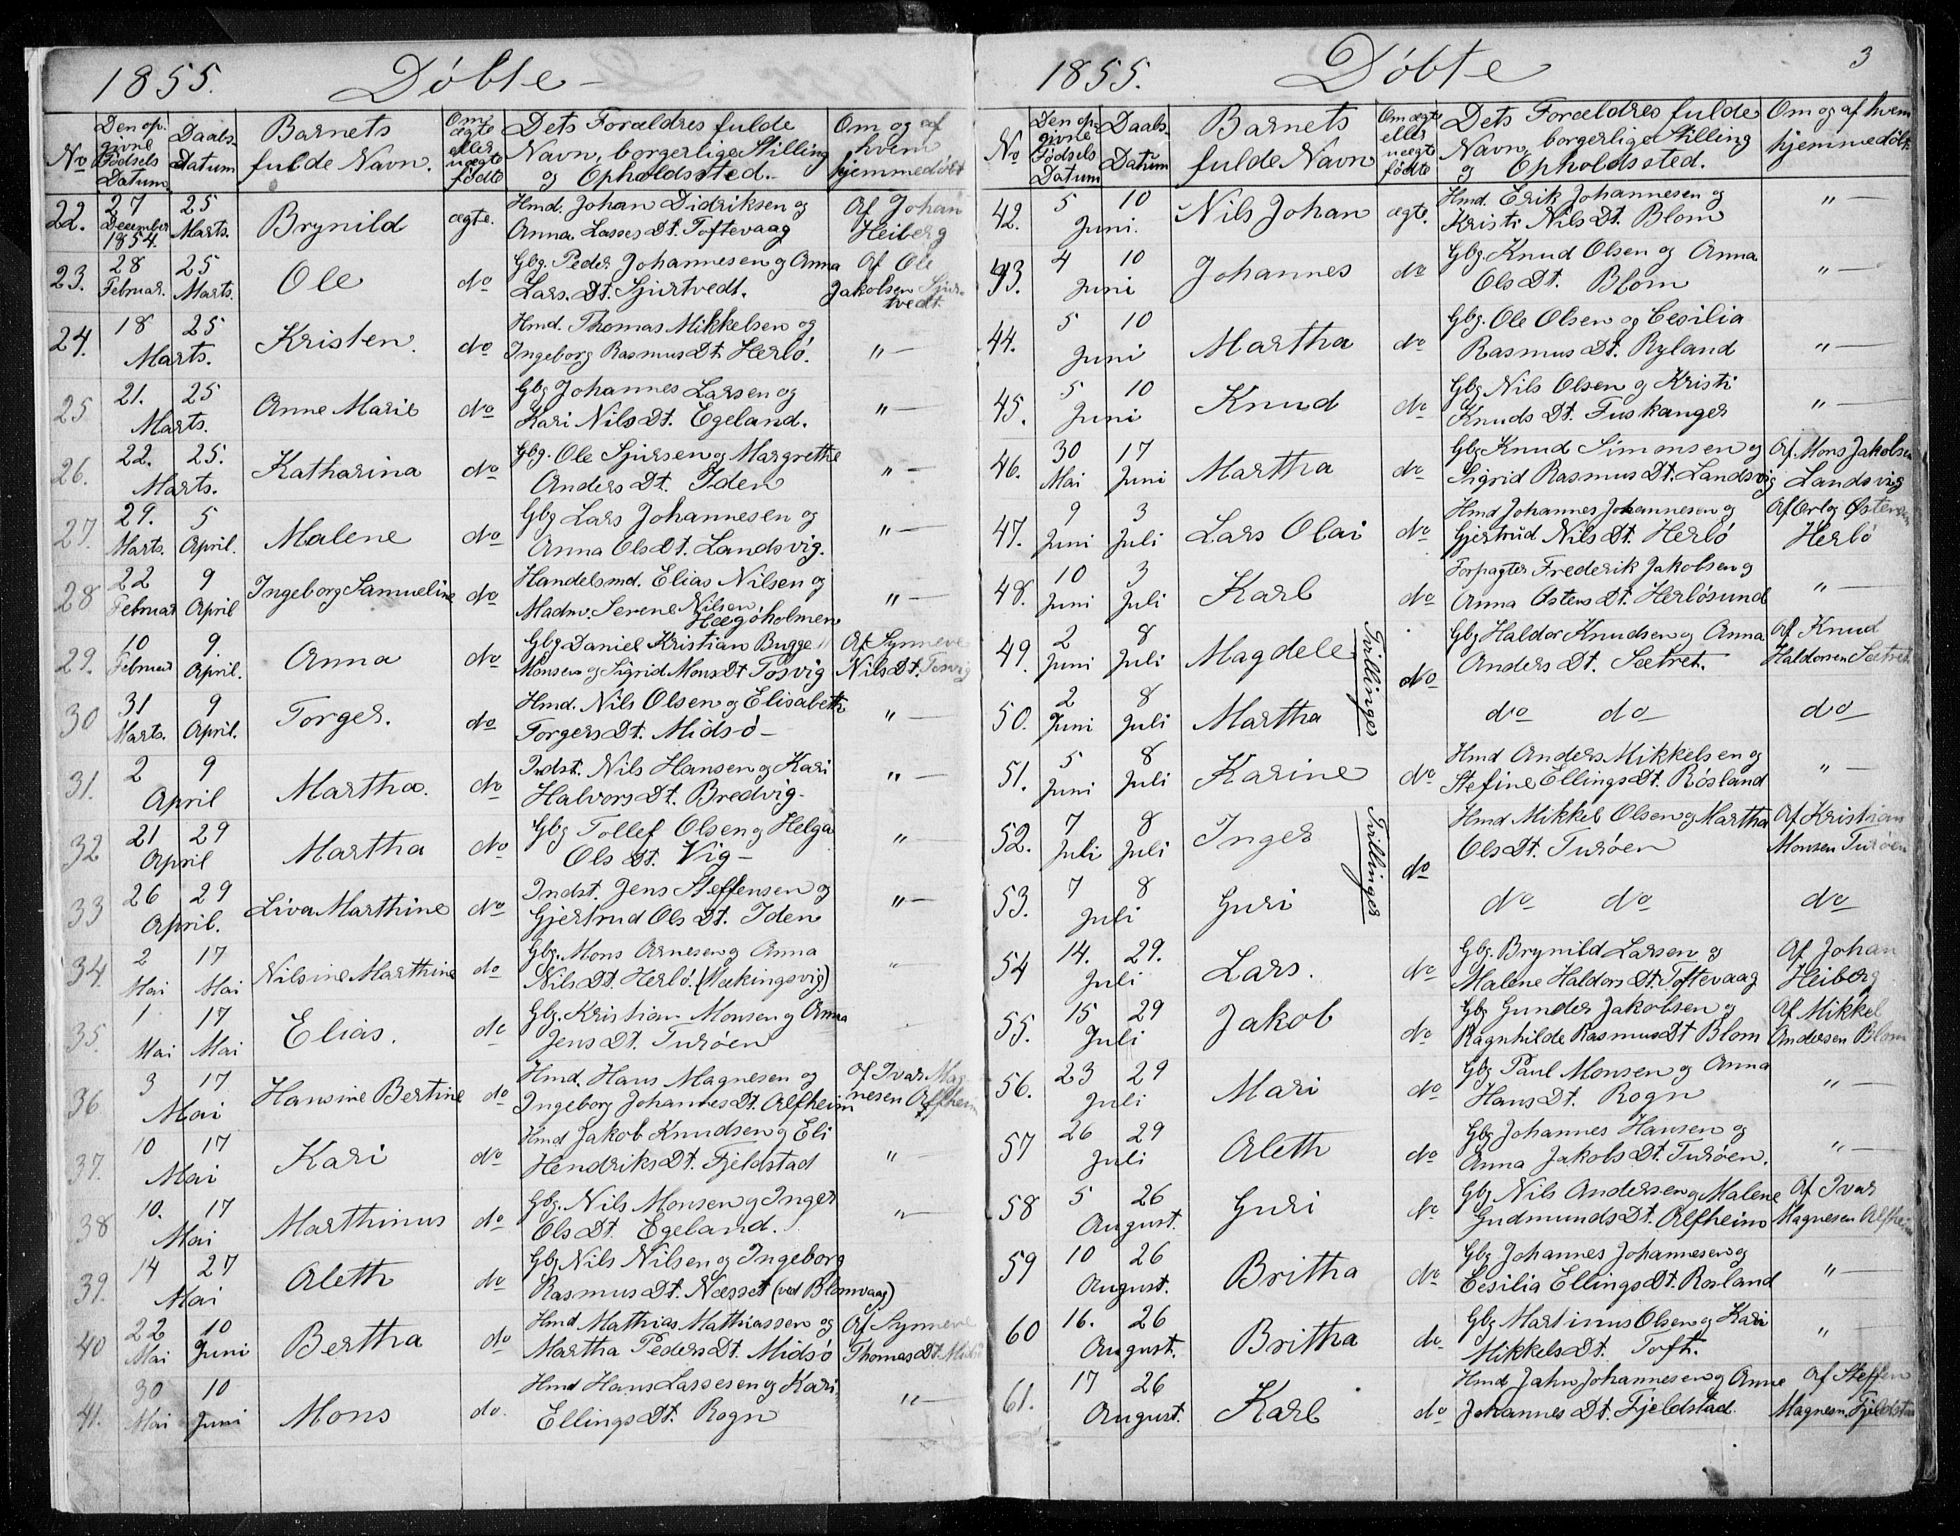 1855. Døbte
No
Den opgivne Fødsels Datum
Daabs-Datum
Barnets fulde Navn.
Om ægte eller uægte fødte
Dets Forældres fulde Navn, borgerlige Stilling og Opholdssted.
Om og af hvem hjemmedøbt
22. 27 December 1854. 25 Marts. Brynild ægte. Hmd. Johan Didriksen og Anna Lasses Dt. Toftevaag Af Johan Heiberg
23. 28 Februar. 25 Marts. Ole do Gbg. Peder Johannesen og Anna Lars. Dt. Sjurtvedt. Af Ole Jakobsen Sjurtvedt.
24. 18 25 Marts. Kristen. do Hmd. Thomas Mikkelsen og Ingeborg Rasmus Dt. Herlø. "—
25 21. 25 Marts. Anne Marie do Gbg Johannes Larsen og Kari Nils Dt. Egeland. "—
26. 22. 25. Marts. Katharina do Gbg. Ole Sjursen og Margrethe Anders Dt. Iden "—
27. 29. Marts. 5 April. Malene do Gbg Lars Johannesen og Anna Ols Dt. Landsvig. "—
28 22 Februar 9 April Ingeborg Samueline do Handelsmd. Elias Nilsen og Madm. Serene Nilsen Hægøholmen "—
29. 10 Februar 9 April. Anna do Gbg Daniel Kristian Bugge Monsen og Sigrid Mons Dt Tosvig Af Synneve Nils Dt. Tosvig
30 31 Marts. 9 April. Torger. do Hmd. Nils Olsen og Elisabeth Torgers Dt. Midsø— "—
31. 2 9 April Martha. do Indst. Nils Hansen og Kari Halvors Dt. Bredvig- "—
32 21 29 April Martha do Gbg Tollef Olsen og Helga Ols Dt. Vig— "—
33 26 29 April. Liva Marthine do Indst. Jens Steffensen og Gjertrud Ols Dt. Iden "—
34. 2 Mai 17 Mai Nilsine Marthine do Gbg. Mons Arnesen og Anna Nils Dt. Herlø. (Vækingsvig) "
35. 1 Mai 17 Mai Elias. do Gbg. Kristian Monsen og Anna Jens Dt. Turøen
36. 3 17 Mai Hansine Bertine do Hmd. Hans Magnesen og Ingeborg Johannes Dt. Alfheim Af Ivar Magnesen Alfheim
37. 10 17 Mai Kari do Hmd Jakob Knudsen og Eli Hendriks Dt. Fjeldstad "—
38 10. 17 Mai Marthinus do Gbg. Nils Monsen og Inger Ols Dt. Egeland. "—
39. 14 27 Mai Aleth do Gbg Nils Nilsen og Ingeborg Rasmus Dt. Næsset (ved Blomvaag)
40 22 Mai 10 Juni Bertha do Hmd Mathias Mathiassen og Martha Peders Dt. Midsø Af Synneve Thomas Dt Midsø
41. 30 Mai 10 Juni Mons do. Hmd Hans Lassesen og Kari Ellings Dt. Rogn "—
1855. Døbte 3
No
Den opgivne Fødsels Datum
Daabs-Datum
Barnets fulde Navn
Om ægte eller uægte fødte
Dets Forældres fulde Navn, borgerlige Stilling og Opholdssted.
Om og af hvem hjemmedøbt
42. 5 10 Juni. Nils Johan ægte. Hmd. Erik Johannesen og Kristi Nils Dt. Blom "—
43. 4 10 Juni Johannes do Gbg. Knud Olsen og Anna Ols Dt. Blom "—
44. 5 10 Juni Martha do Gbg. Ole Olsen og Cesilia Rasmus Dt. Ryland "—
45. 5 10 Juni Knud do Gbg Nils Olsen og Kristi Knuds Dt. Fuskanger "—
46. 30 Mai 17 Juni Martha do Gbg Knud Simonsen og Sigrid Rasmus Dt. Landsvig Af Mons Jakobsen Landsvig
47. 9 Juni 3 Juli Lars Olai do Hmd Johannes Johannesen og Gjertrud Nils Dt. Herlø Af Herlø
48. 10 Juni 3 Juli Karl do Forpagter Frederik Jakobsen og Anna Østens Dt. Herløsund "—
49. 2 Juni 8 Juli Magdele Tvillinger do Gbg Haldor Knudsen og Anna Anders Dt. Sætret. Af Knud Haldorsen Sætret.
50. 2 Juni 8 Juli Martha do do do
51. 5 Juni 8 Juli Karine do Hmd Anders Mikkelsen og Stefine Ellings Dt. Rosland "—
52. 7 Juli 8 Juli Inger Tvillinger do Hmd Mikkel Olsen og Martha Ols Dt. Turøen Af Kristian Monsen Turøen
53. 7 8 Juli Guri do do do
54 14. 29. Juli Lars. do Gbg. Brynild Larsen og Malene Haldors Dt. Toftevaag Af Johan Heiberg
55. 15 29 Juli Jakob do Gbg Gunder Jakobsen og Ragnhilde Rasmus Dt Blom Af Mikkel Andersen Blom
56. 23 29 Juli Mari do Gbg Paul Monsen og Anna Hans Dt. Rogn "—
57 26 29 Juli Aleth do Gbg Johannes Hansen og Anna Jakobs Dt. Turøen. "—
58 5 26 August. Guri do Gbg Nils Andersen og Malene Gudmunds Dt. Alfheim Af Ivar Magnesen Alfheim
59 10 26 August. Britha do Gbg Johannes Johannesen og Cesilia Ellings Dt. Rosland "—
60 16. 26 August. Britha do. Gbg Martinus Olsen og Kari Mikkels Dt. Toft. "
61. 17 26 August. Karl do Hmd Jahn Johannesen og Anne Johannes Dt. Fjeldstad Af Steffen Magnesn. Fjeldstad